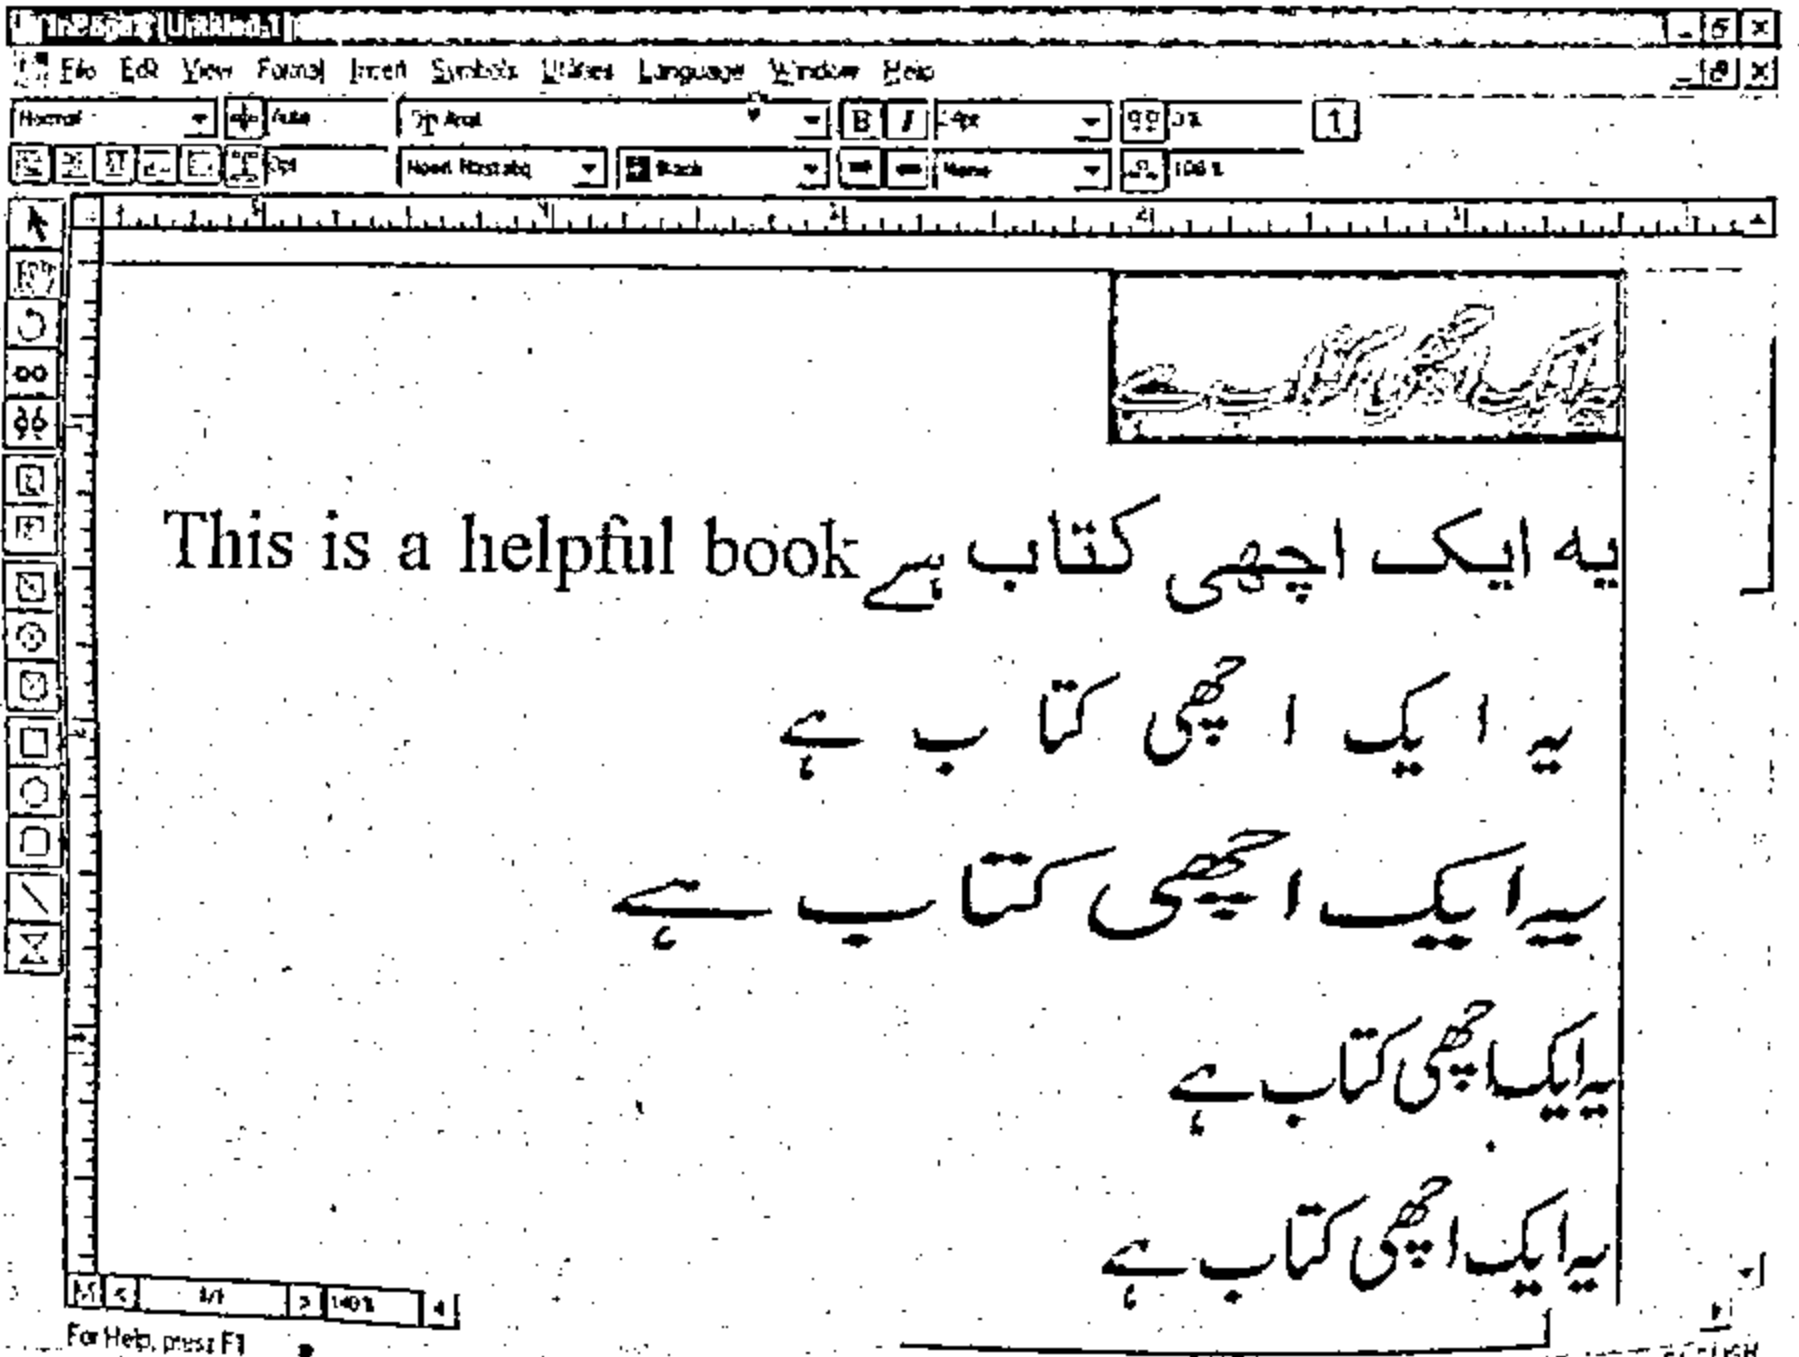 InPage [Untitled1]
File Edit View Format Insert Symbols Utilities Language Window Help
Normal Auto Arial B I 24pt 0%
0pt Noori Nastaliq Black None 100%
یہ ایک اچھی کتاب ہے This is a helpful book
یہ ایک اچھی کتاب ہے
یہ ایک اچھی کتاب ہے
یہ ایک اچھی کتاب ہے
یہ ایک اچھی کتاب ہے
M < 1/1 > 140%
For Help, press F1